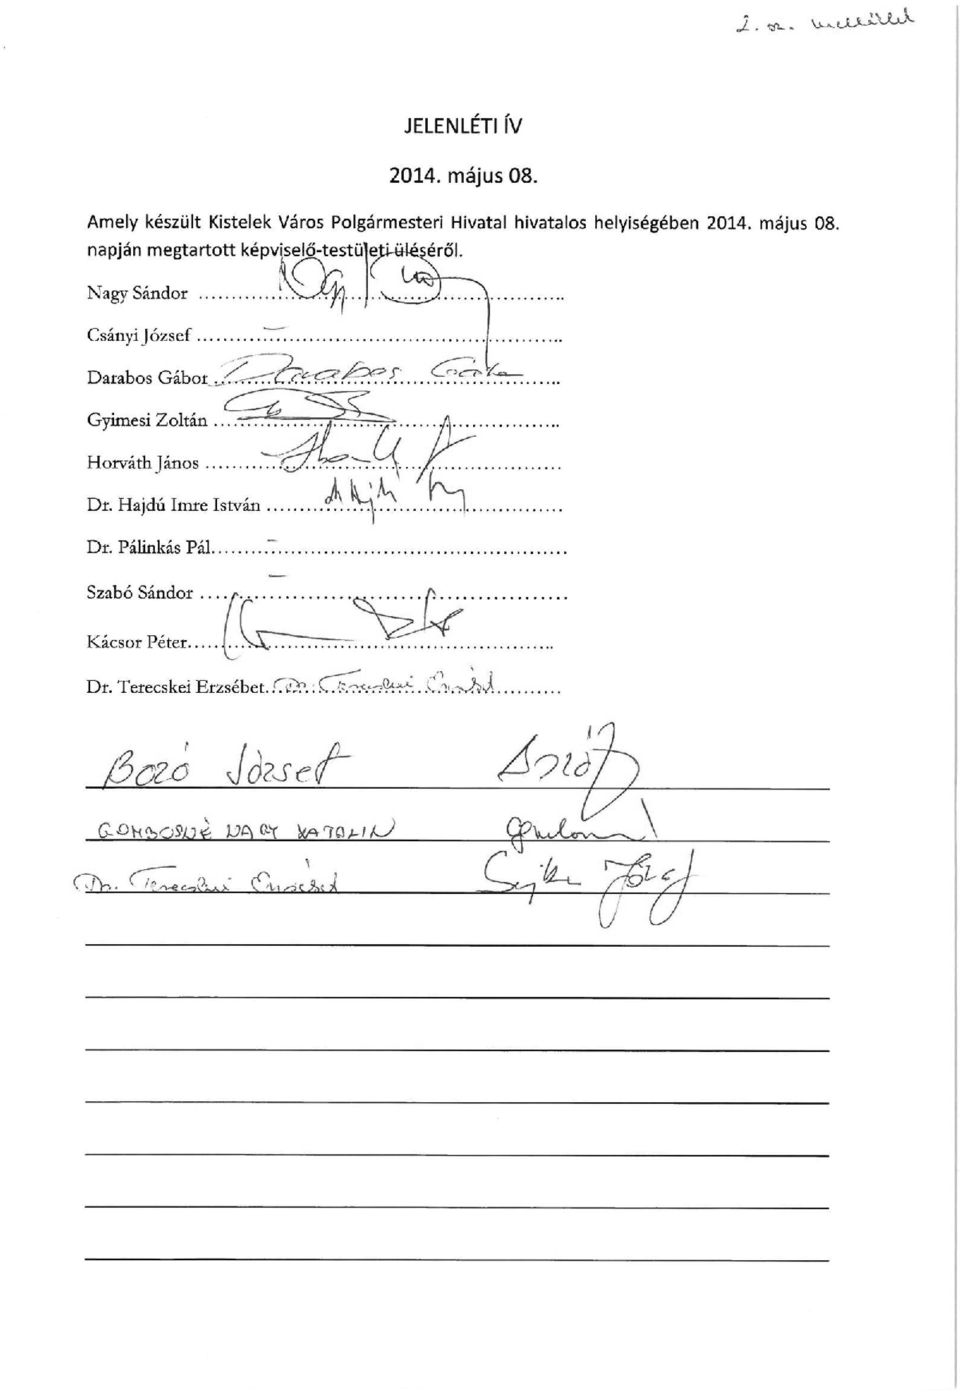 2. sz. melléklet
JELENLÉTI ÍV
2014. május 08.
Amely készült Kistelek Város Polgármesteri Hivatal hivatalos helyiségében 2014. május 08.
napján megtartott képviselő-testületi üléséről.
Nagy Sándor ..........
Csányi József .......... –
Darabos Gábor .......... Darabos Gábor
Gyimesi Zoltán ..........
Horváth János ..........
Dr. Hajdú Imre István ..........
Dr. Pálinkás Pál .......... –
Szabó Sándor .......... –
Kácsor Péter ..........
Dr. Terecskei Erzsébet .......... Dr. Terecskei Erzsébet
Bozó József
GOMBOSNÉ NAGY KATALIN
Dr. Terecskei Erzsébet József